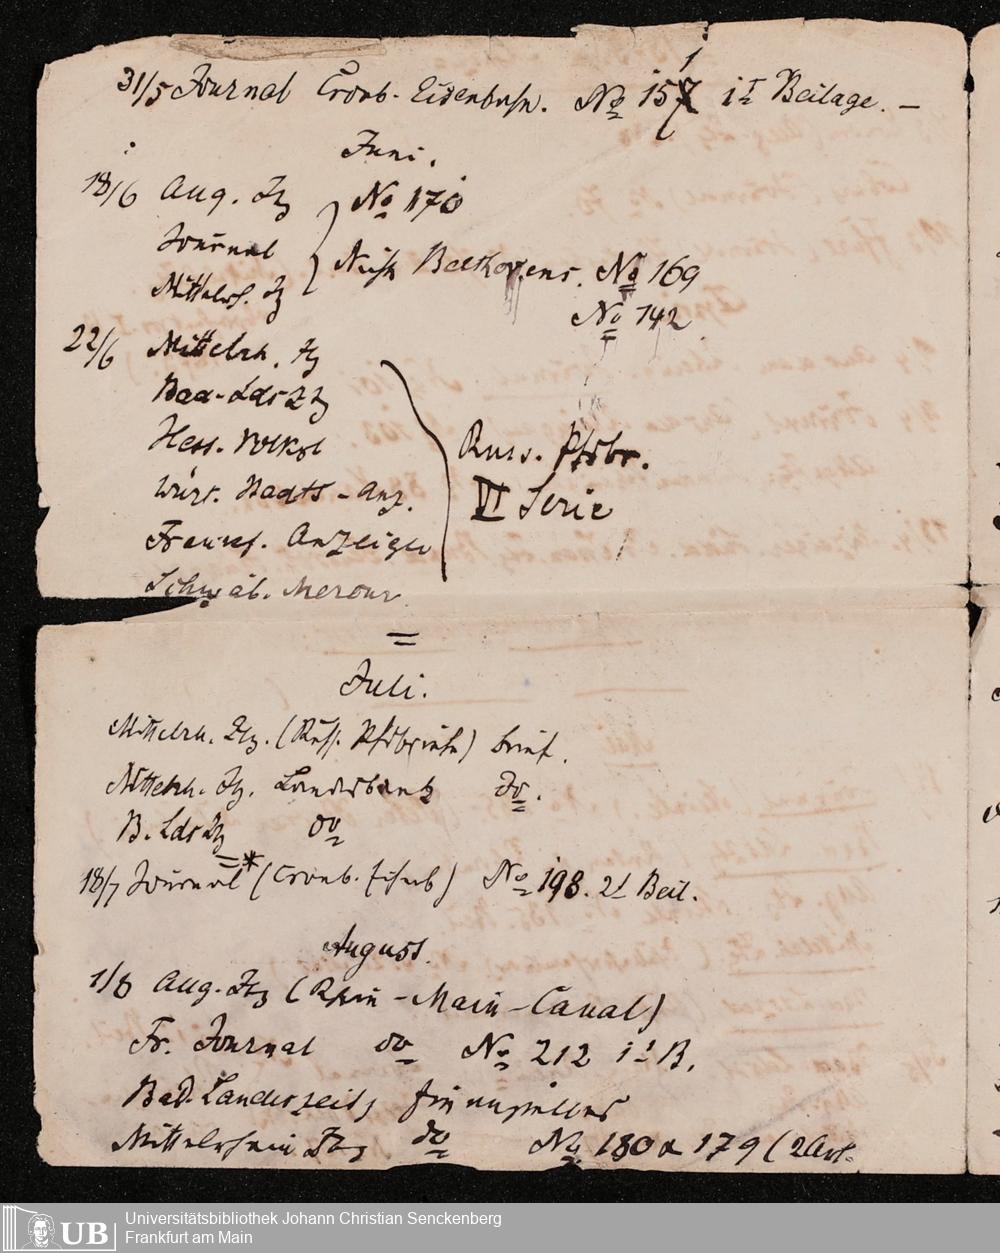 31/5 Journal Cronb. Eisenbahn. No 151 1t Beilage. —
Juni.
18/6 Aug. Ztg No 170
Journal
Nichte Beethovens. No 169
Mittelrh. Ztg
No 142
22/6 Mittelrh. Ztg
Bad. Lds Ztg
Hess. Volksbl
Russ. Pfdbr.
Würt. Staats-Anz.
VI Serie
Frankf. Anzeiger
Schwäb. Mercur
Juli.
Mittelrh. Ztg. (Russ. Pfdbriefe) brief.
Mittelrh. Ztg. Landesbank do.
B. Lds Ztg do
18/7 Journal* (Cronb. Eisenb) No 198. 2t Beil.
August.
1/8 Aug. Ztg (Rhein-Main-Canal)
Fr. Journal do No 212 1t B.
Bad. Landeszeitg finanzielles
Mittelrhein Ztg do No 180 & 179 (2 Art.
UB
Universitätsbibliothek Johann Christian Senckenberg
Frankfurt am Main